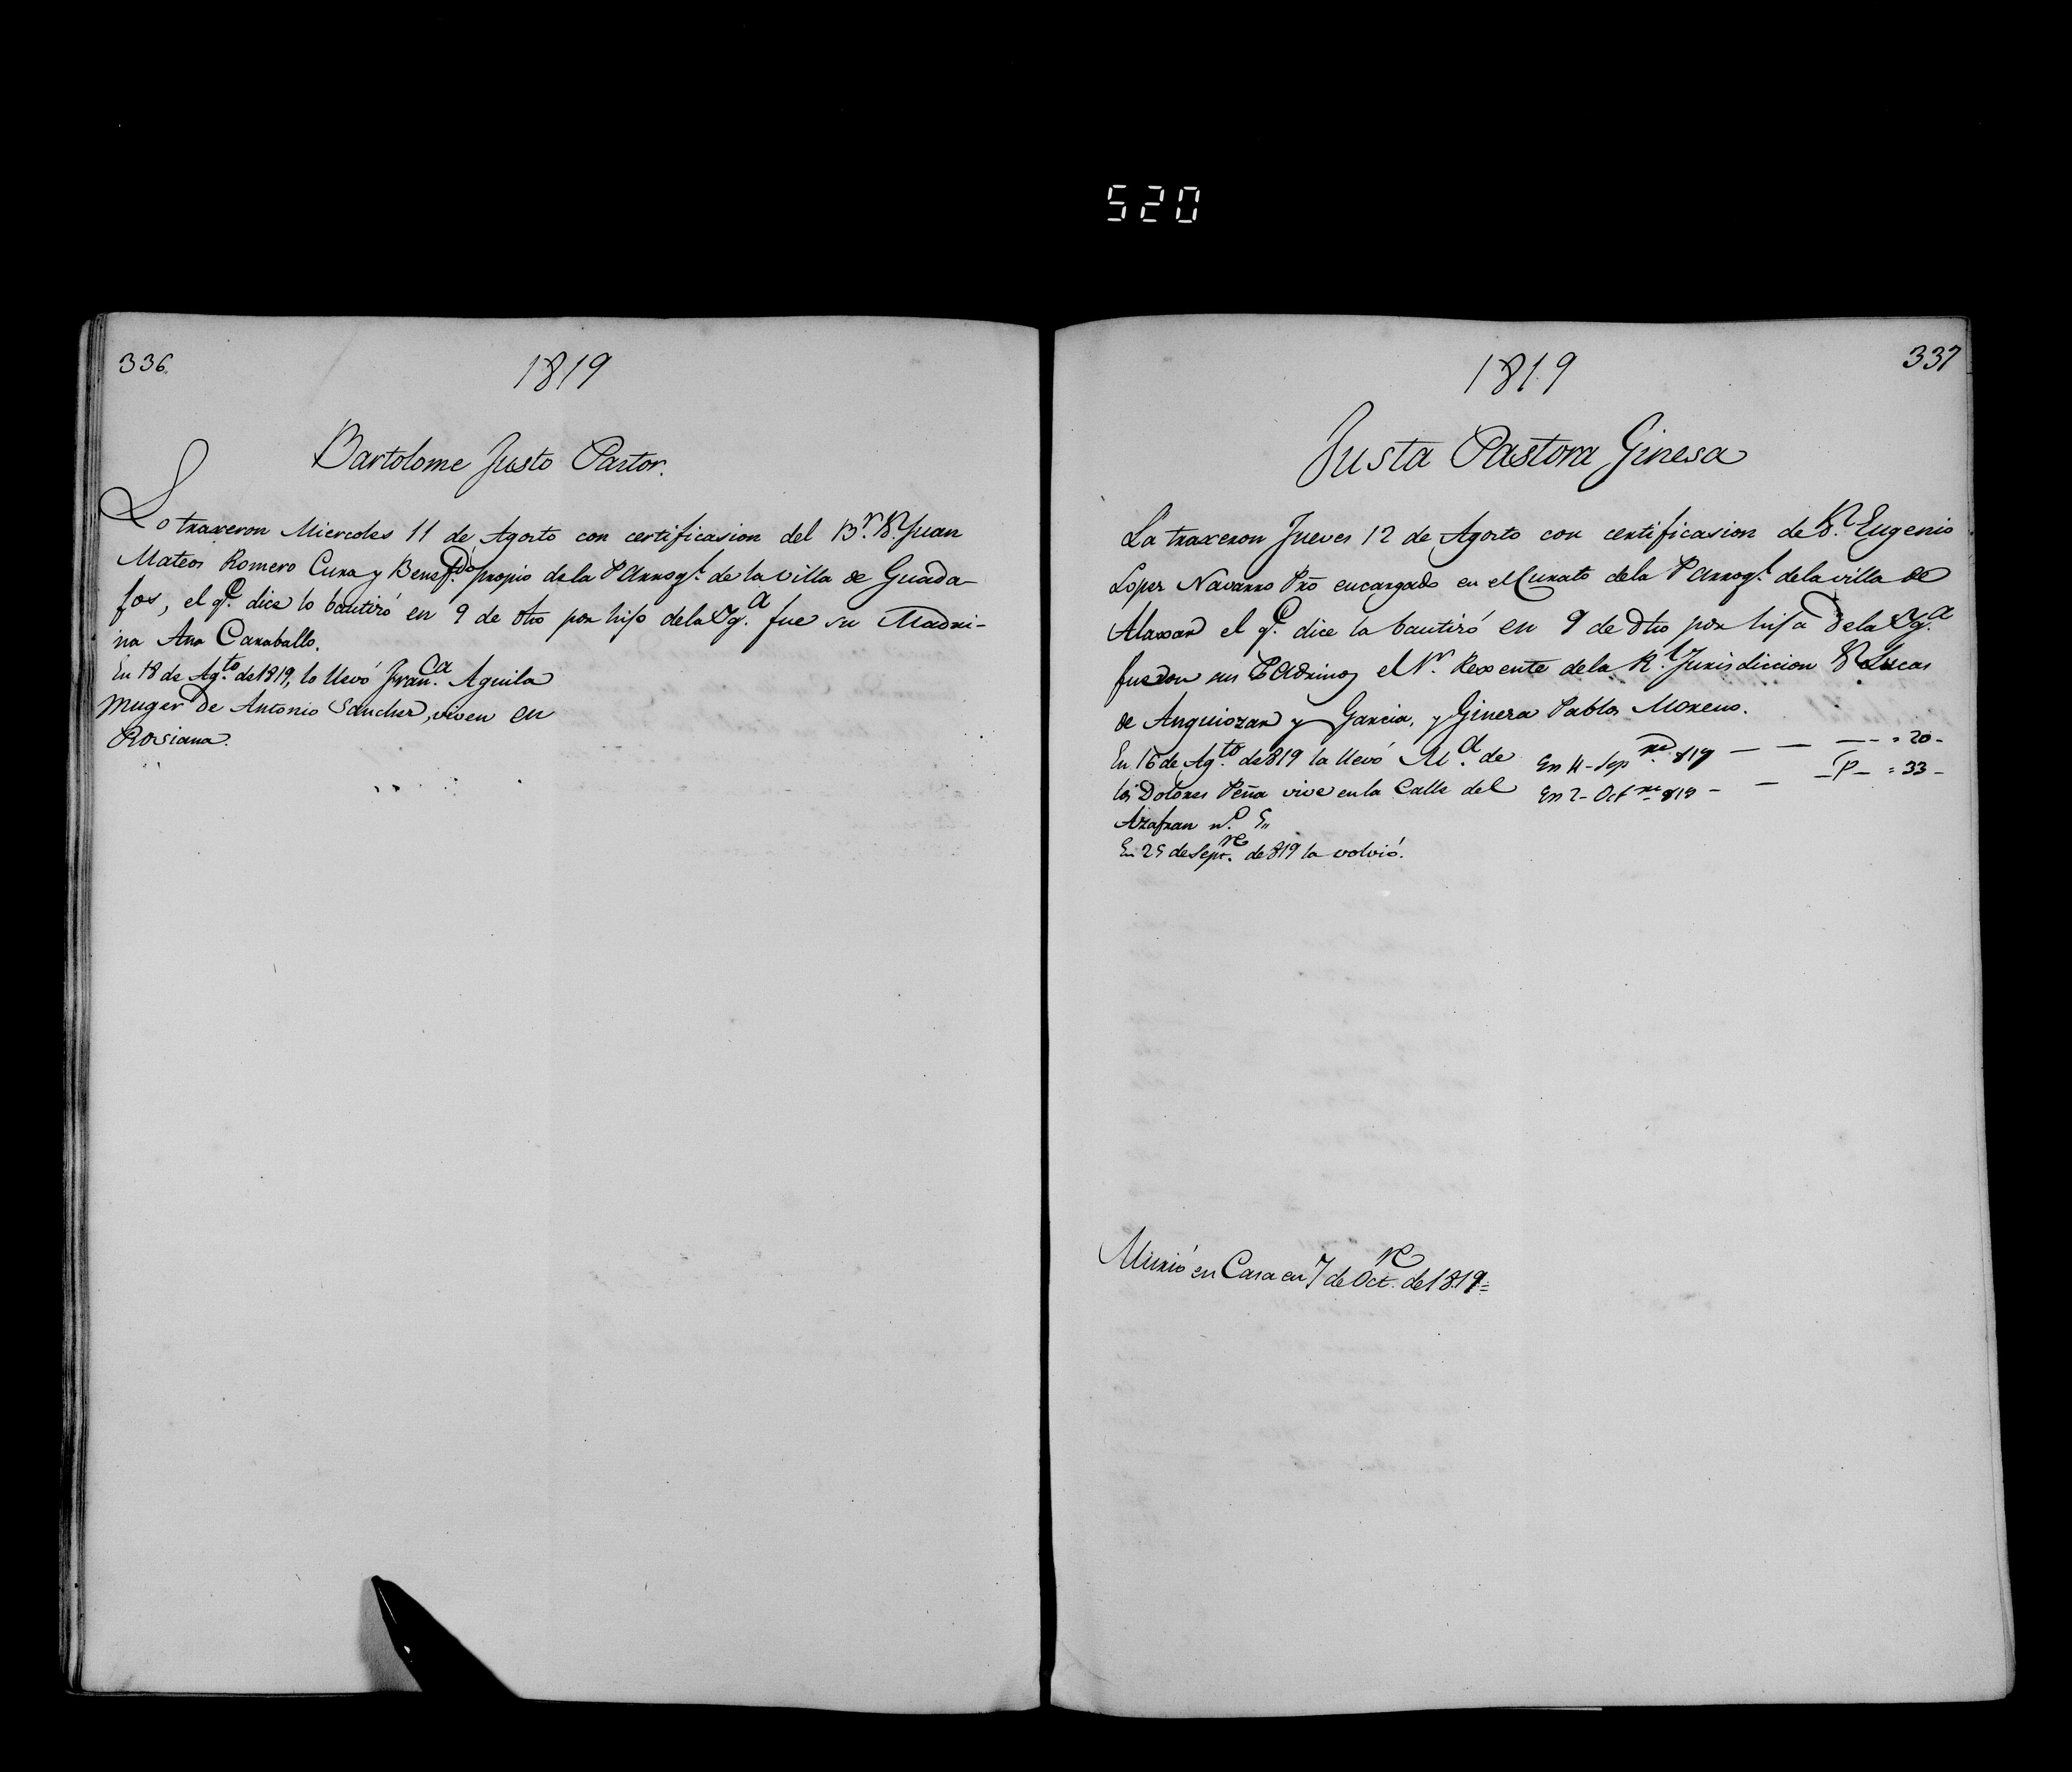 520
336.
1819
Bartolome Justo Pastor.
Lo traxeron Miercoles 11 de Agosto con certificasion del Br. Dn. Juan
Mateos Romero Cura y Benefdo. propio de la Parroql. de la villa de Guada-
fos, el qe. dice lo bautizó en 9 de dho por hijo de la Yga. fue su Madri-
na Ana Caraballo.
En 18 de Agto. de 1819, lo llevó Franca. Aguila
muger de Antonio Sanchez, viven en
Rosiana.
1819
337
Justa Pastora Ginesa
La traxeron Jueves 12 de Agosto con certificasion de Dn. Eugenio
Lopez Navarro Pro encargado en el Curato de la Parroql. de la villa de
Alaxar el qe. dice la bautizó en 9 de dho por hija de la Yga.
fueron sus Padrinos el Sr. Rexente de la Rl. Jurisdiccion Dn Lucas
de Anguiozar y Garcia, y Ginesa Pablos Moreno.
En 16 de Agto. de 819 la llevó Ma. de
los Dolores Peña vive en la Calle del
Azafran no. 5,,
En 25 de Septre. de 819 la volvió.
En 11 - Sepre. 819 — — — - = 20 -
En 2 - Octre 819 - — - P - = 33 -
Murió en Casa en 7 de Octre. de 1819=